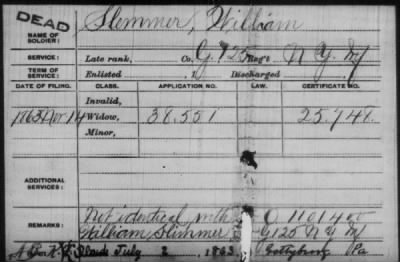 DEAD
NAME OF SOLDIER: Slemmer, William
SERVICE: Late rank, Co. G, 125 Reg't N Y Inf
TERM OF SERVICE: Enlisted , 1 Discharged
DATE OF FILING. CLASS. APPLICATION NO. LAW. CERTIFICATE NO.
Invalid,
1863 Nov 14 Widow, 38.551 25.748.
Minor,
ADDITIONAL SERVICES:
REMARKS: Not identical with O 1101400
William Slimmer G 125 N Y Inf
July 2, 1863 Gettysburg Pa